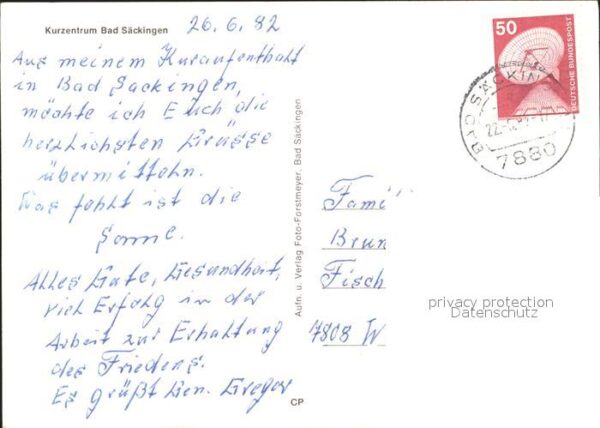 Kurzentrum Bad Säckingen
26.6.82
Aus meinem Kuraufenthalt
in Bad Säckingen,
möchte ich Euch die
herzlichsten Grüsse
übermitteln.
Was fehlt ist die
Sonne.
Alles Gute, Gesundheit,
viel Erfolg in der
Arbeit zur Erhaltung
des Friedens.
Es grüßt Gen. Gregor
CP
Aufn. u. Verlag Foto-Forstmeyer, Bad Säckingen
50
DEUTSCHE BUNDESPOST
BAD SÄCKIN
7880
Fami
Brun
Fisch
7808 W
privacy protection
Datenschutz